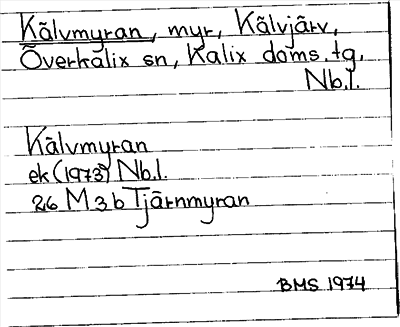 Kälvmyran, myr, Kälvjärv,
Överkalix sn, Kalix doms.tg.
Nb.l.
Kälvmyran
ek (1973) Nb.l.
26 M 3 b Tjärnmyran
BMS 1974